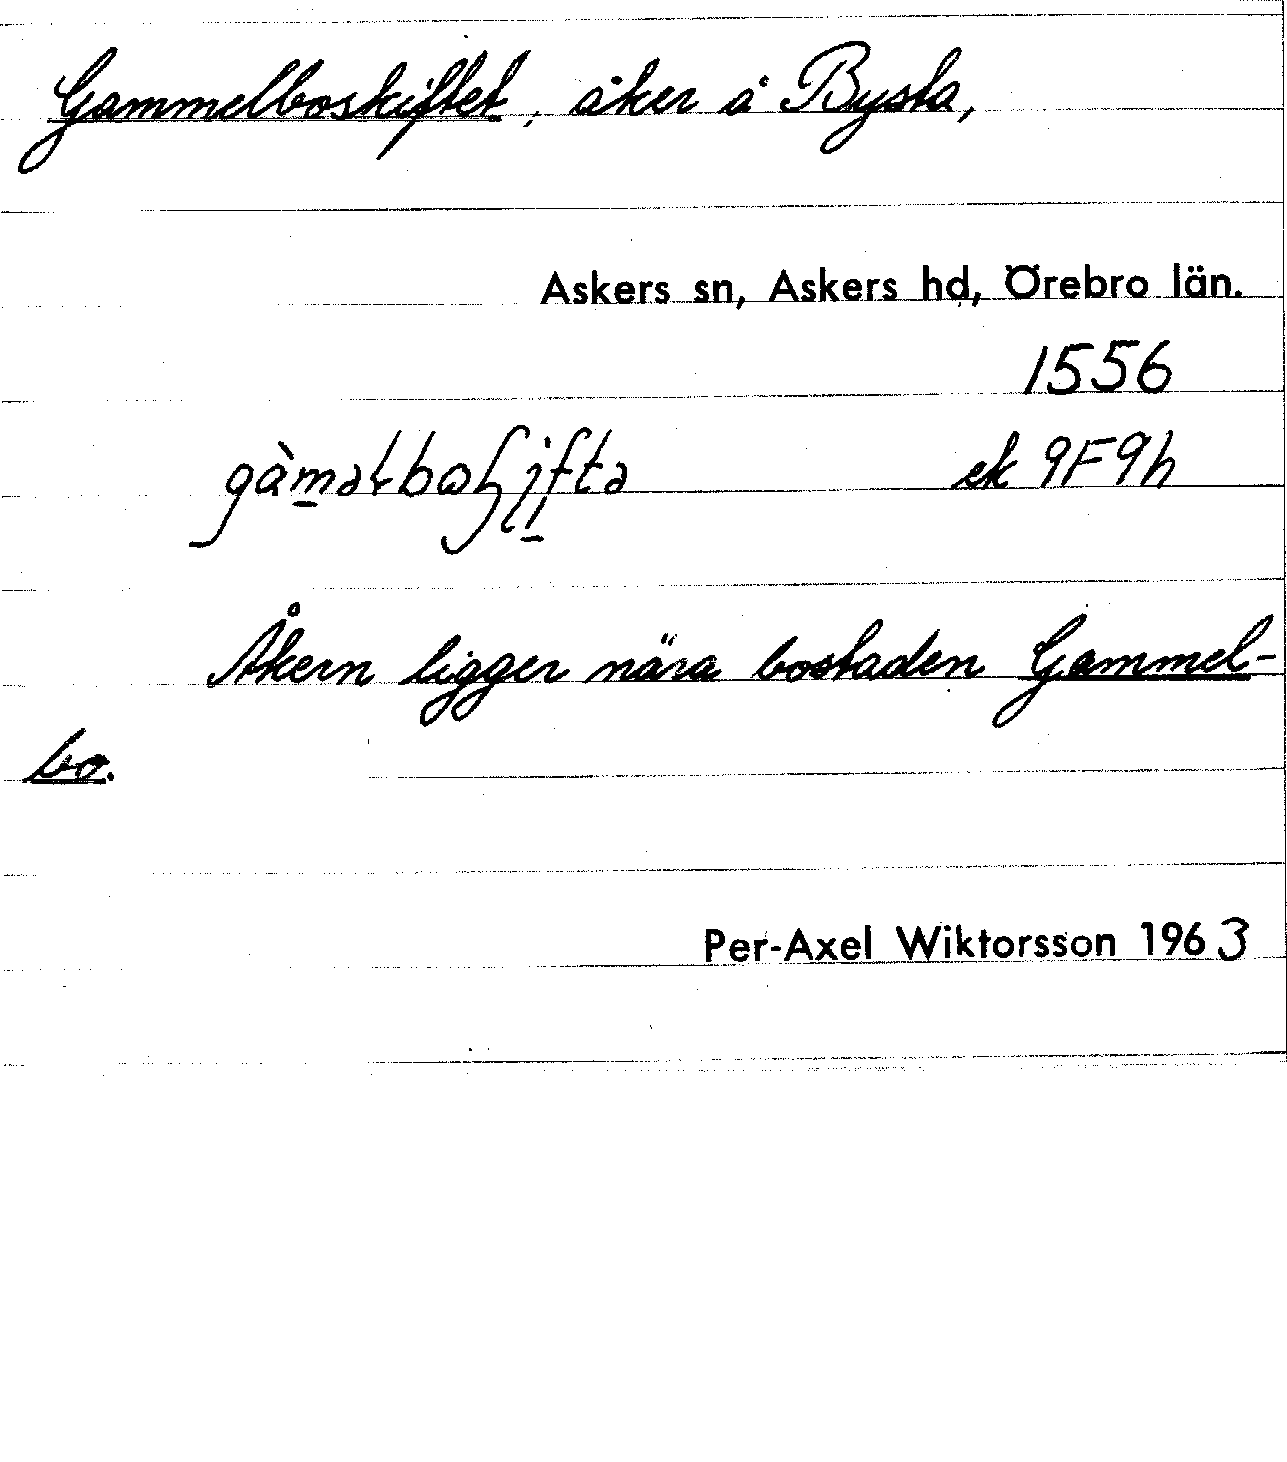 Gammelboskiftet, åker å Bysta,
Askers sn, Askers hd, Örebro län.
1556
ek 9F9h
Åkern ligger nära bostaden Gammel-
bo.
Per-Axel Wiktorsson 1963